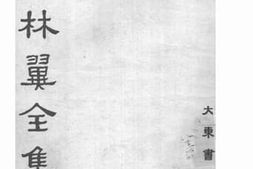 林翼全集
大東書